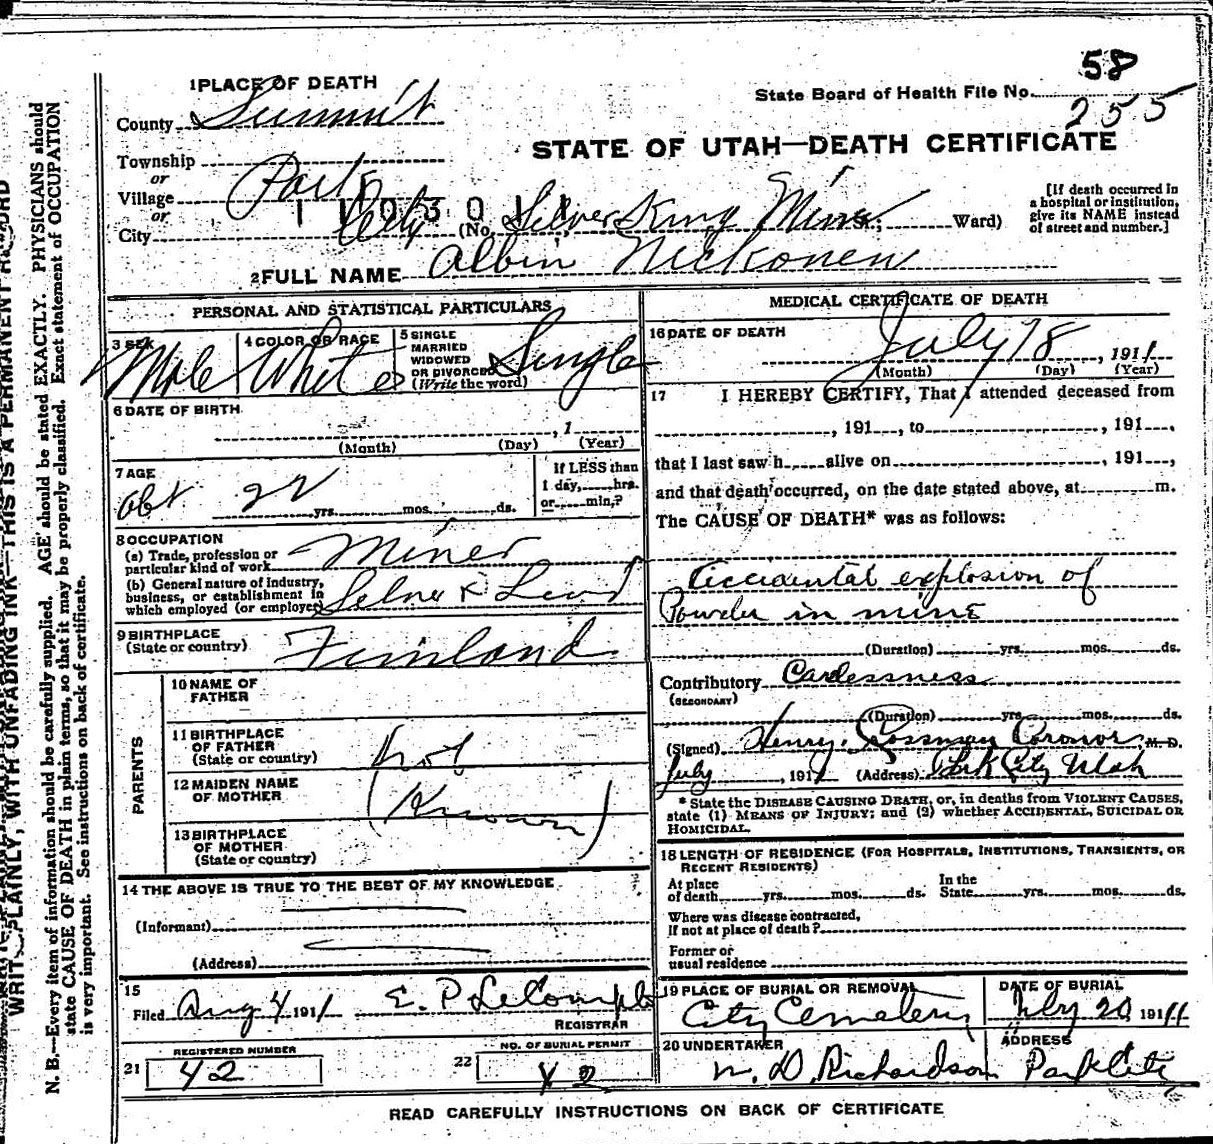 58
1 PLACE OF DEATH
State Board of Health File No. 255
County Summit
STATE OF UTAH—DEATH CERTIFICATE
Township
or
Village Park
or
City City (No. Silver King Mine St.; Ward)
[If death occurred in
a hospital or institution,
give its NAME instead
of street and number.]
2 FULL NAME Albin Nickonen
PERSONAL AND STATISTICAL PARTICULARS
3 SEX Male
4 COLOR OR RACE White
5 SINGLE
MARRIED
WIDOWED
OR DIVORCED
(Write the word) Single
6 DATE OF BIRTH
, 1
(Month) (Day) (Year)
7 AGE
abt 22 yrs. mos. ds.
If LESS than
1 day, hrs.
or min.?
8 OCCUPATION
(a) Trade, profession or
particular kind of work Miner
(b) General nature of industry,
business, or establishment in
which employed (or employer) Silver & Lead
9 BIRTHPLACE
(State or country) Finland
PARENTS
10 NAME OF
FATHER
11 BIRTHPLACE
OF FATHER
(State or country)
Not
12 MAIDEN NAME
OF MOTHER
(Known)
13 BIRTHPLACE
OF MOTHER
(State or country)
14 THE ABOVE IS TRUE TO THE BEST OF MY KNOWLEDGE
(Informant)
(Address)
15
Filed Aug 4 1911 E. P. LeCompte
REGISTRAR
21 REGISTERED NUMBER
42
22 NO. OF BURIAL PERMIT
42
MEDICAL CERTIFICATE OF DEATH
16 DATE OF DEATH
July 18, 1911
(Month) (Day) (Year)
17 I HEREBY CERTIFY, That I attended deceased from
, 191 , to , 191 ,
that I last saw h alive on , 191 ,
and that death occurred, on the date stated above, at m.
The CAUSE OF DEATH* was as follows:
Accidental explosion of
Powder in mine
(Duration) yrs. mos. ds.
Contributory Carlessness
(SECONDARY)
(Duration) yrs. mos. ds.
(Signed) Henry. Rossman Coronor M. D.
July , 1911 (Address) Park City Utah
* State the DISEASE CAUSING DEATH, or, in deaths from VIOLENT CAUSES,
state (1) MEANS OF INJURY; and (2) whether ACCIDENTAL, SUICIDAL OR
HOMICIDAL.
18 LENGTH OF RESIDENCE (FOR HOSPITALS, INSTITUTIONS, TRANSIENTS, OR
RECENT RESIDENTS)
At place
of death yrs. mos. ds.
In the
State yrs. mos. ds.
Where was disease contracted,
if not at place of death?
Former or
usual residence
19 PLACE OF BURIAL OR REMOVAL
City Cemetery
DATE OF BURIAL
July 20, 1911
20 UNDERTAKER
W. D. Richardson
ADDRESS
Park City
READ CAREFULLY INSTRUCTIONS ON BACK OF CERTIFICATE
WRITE PLAINLY, WITH UNFADING INK—THIS IS A PERMANENT RECORD
N. B.—Every item of information should be carefully supplied. AGE should be stated EXACTLY. PHYSICIANS should
state CAUSE OF DEATH in plain terms, so that it may be properly classified. Exact statement of OCCUPATION
is very important. See instructions on back of certificate.